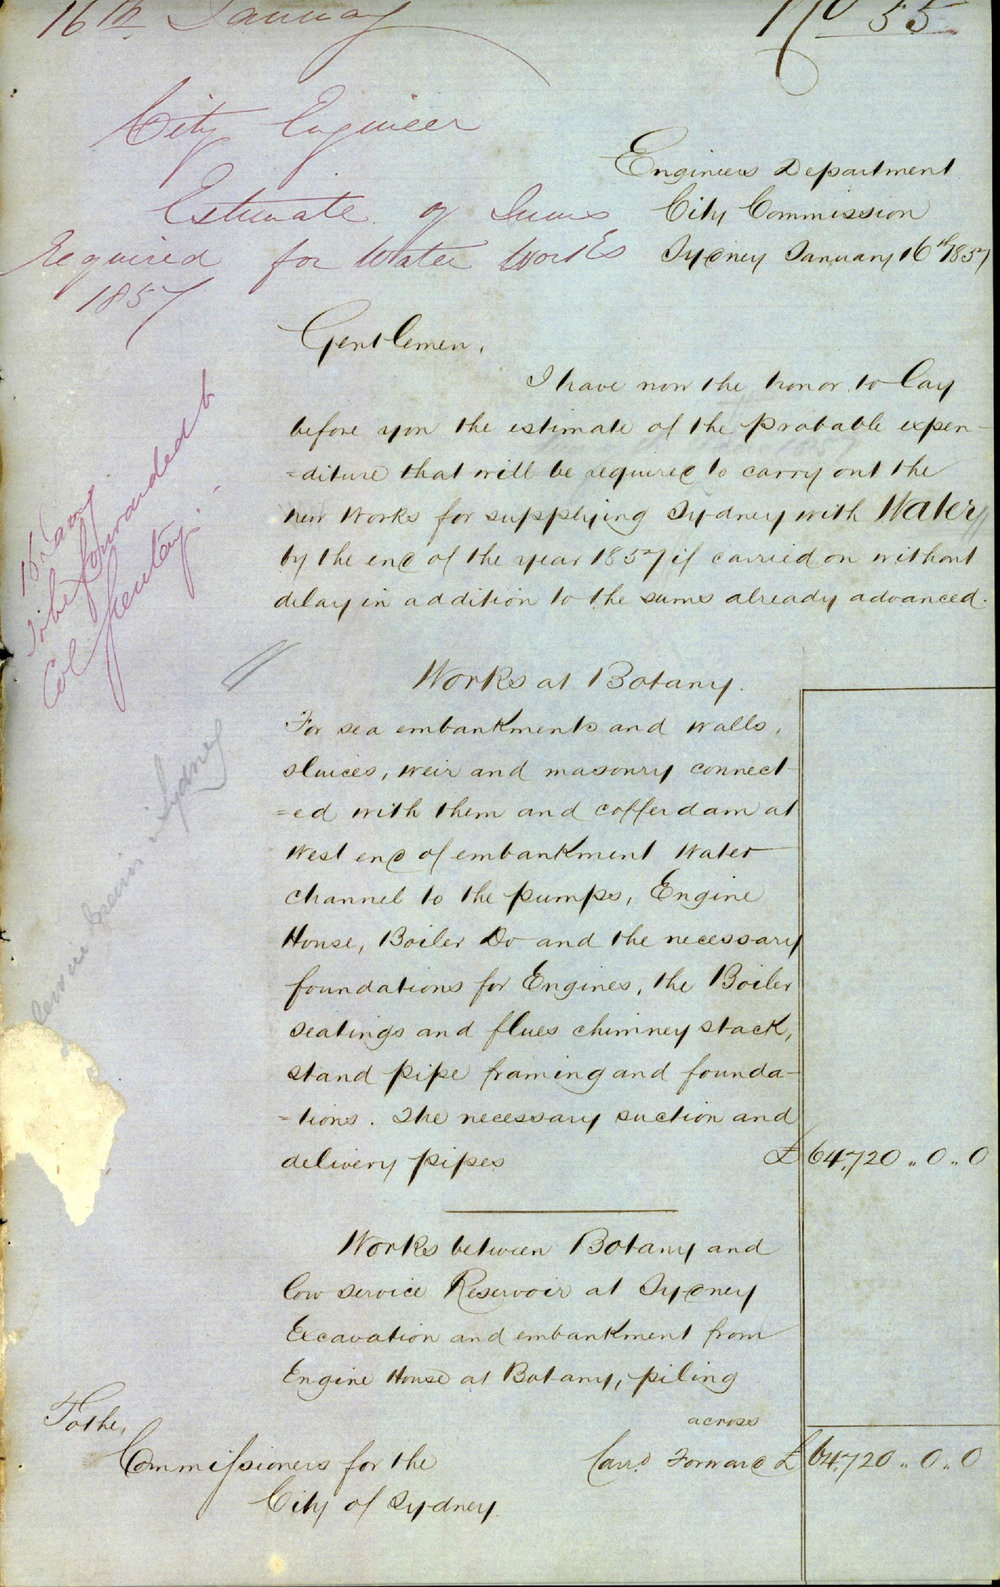 16th January
No 55
City Engineer
Estimate of Sums
required for Water Works
1857
Engineers Department
City Commission
Sydney January 16th 1857
Gentlemen,
I have now the honor to lay
before you the estimate of the probable expen-
=diture that will be required to carry out the
new Works for supplying Sydney with Water
by the end of the year 1857 if carried on without
delay in addition to the sums already advanced.
16 Jany
To be forwarded to
Col Secretary
Works at Botany.
For sea embankments and walls,
sluices, weir and masonry connect-
=ed with them and cofferdam at
West end of embankment Water
channel to the pumps, Engine
House, Boiler Do and the necessary
foundations for Engines, the Boiler
seatings and flues chimney stack,
stand pipe framing and founda-
-tions. The necessary suction and
delivery pipes £ 64,720 ,, 0 ,, 0
Sydney
Works between Botany and
low service Reservoir at Sydney
Excavation and embankment from
Engine House at Botany, piling
across
Carrd Forward £ 64,720 ,, 0 ,, 0
To the,
Commissioners for the
City of Sydney